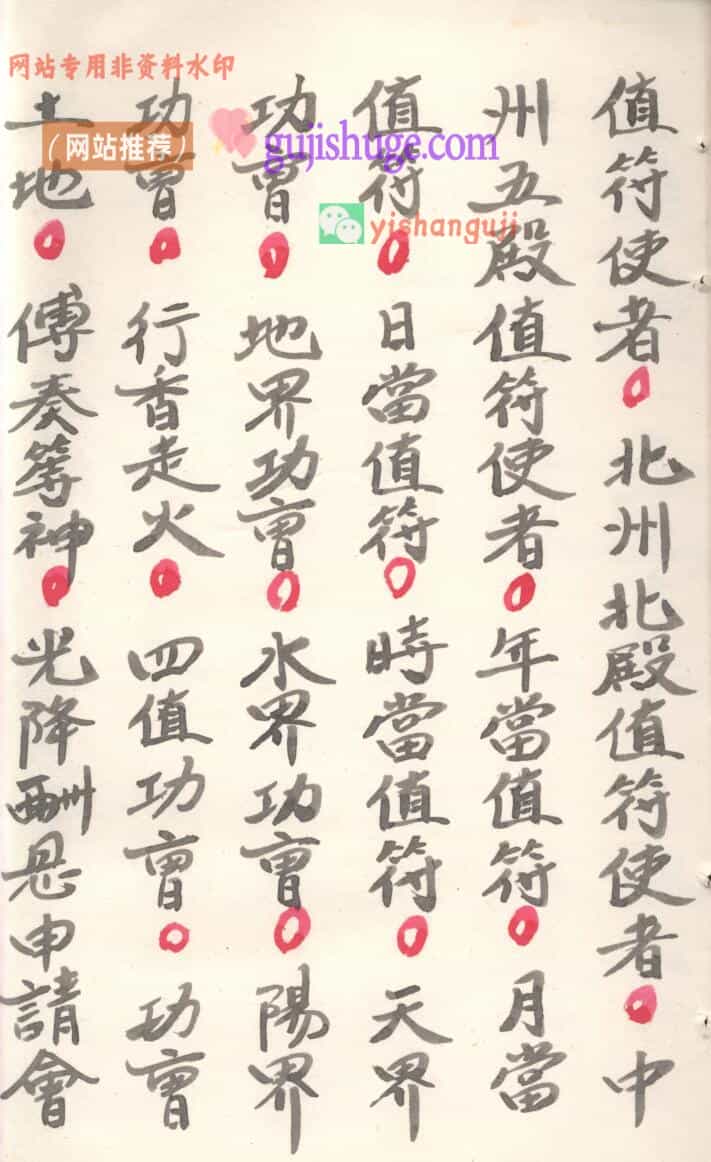 值符使者○北州北殿值符使者○中
州五殿值符使者○年當值符○月當
值符○日當值符○時當值符○天界
功曹○地界功曹○水界功曹○陽界
功曹○行香走火○四值功曹○功曹
土地○傅奏等神○光降酬恩申請會
网站专用非资料水印
(网站推荐)
gujishuge.com
yishanguji